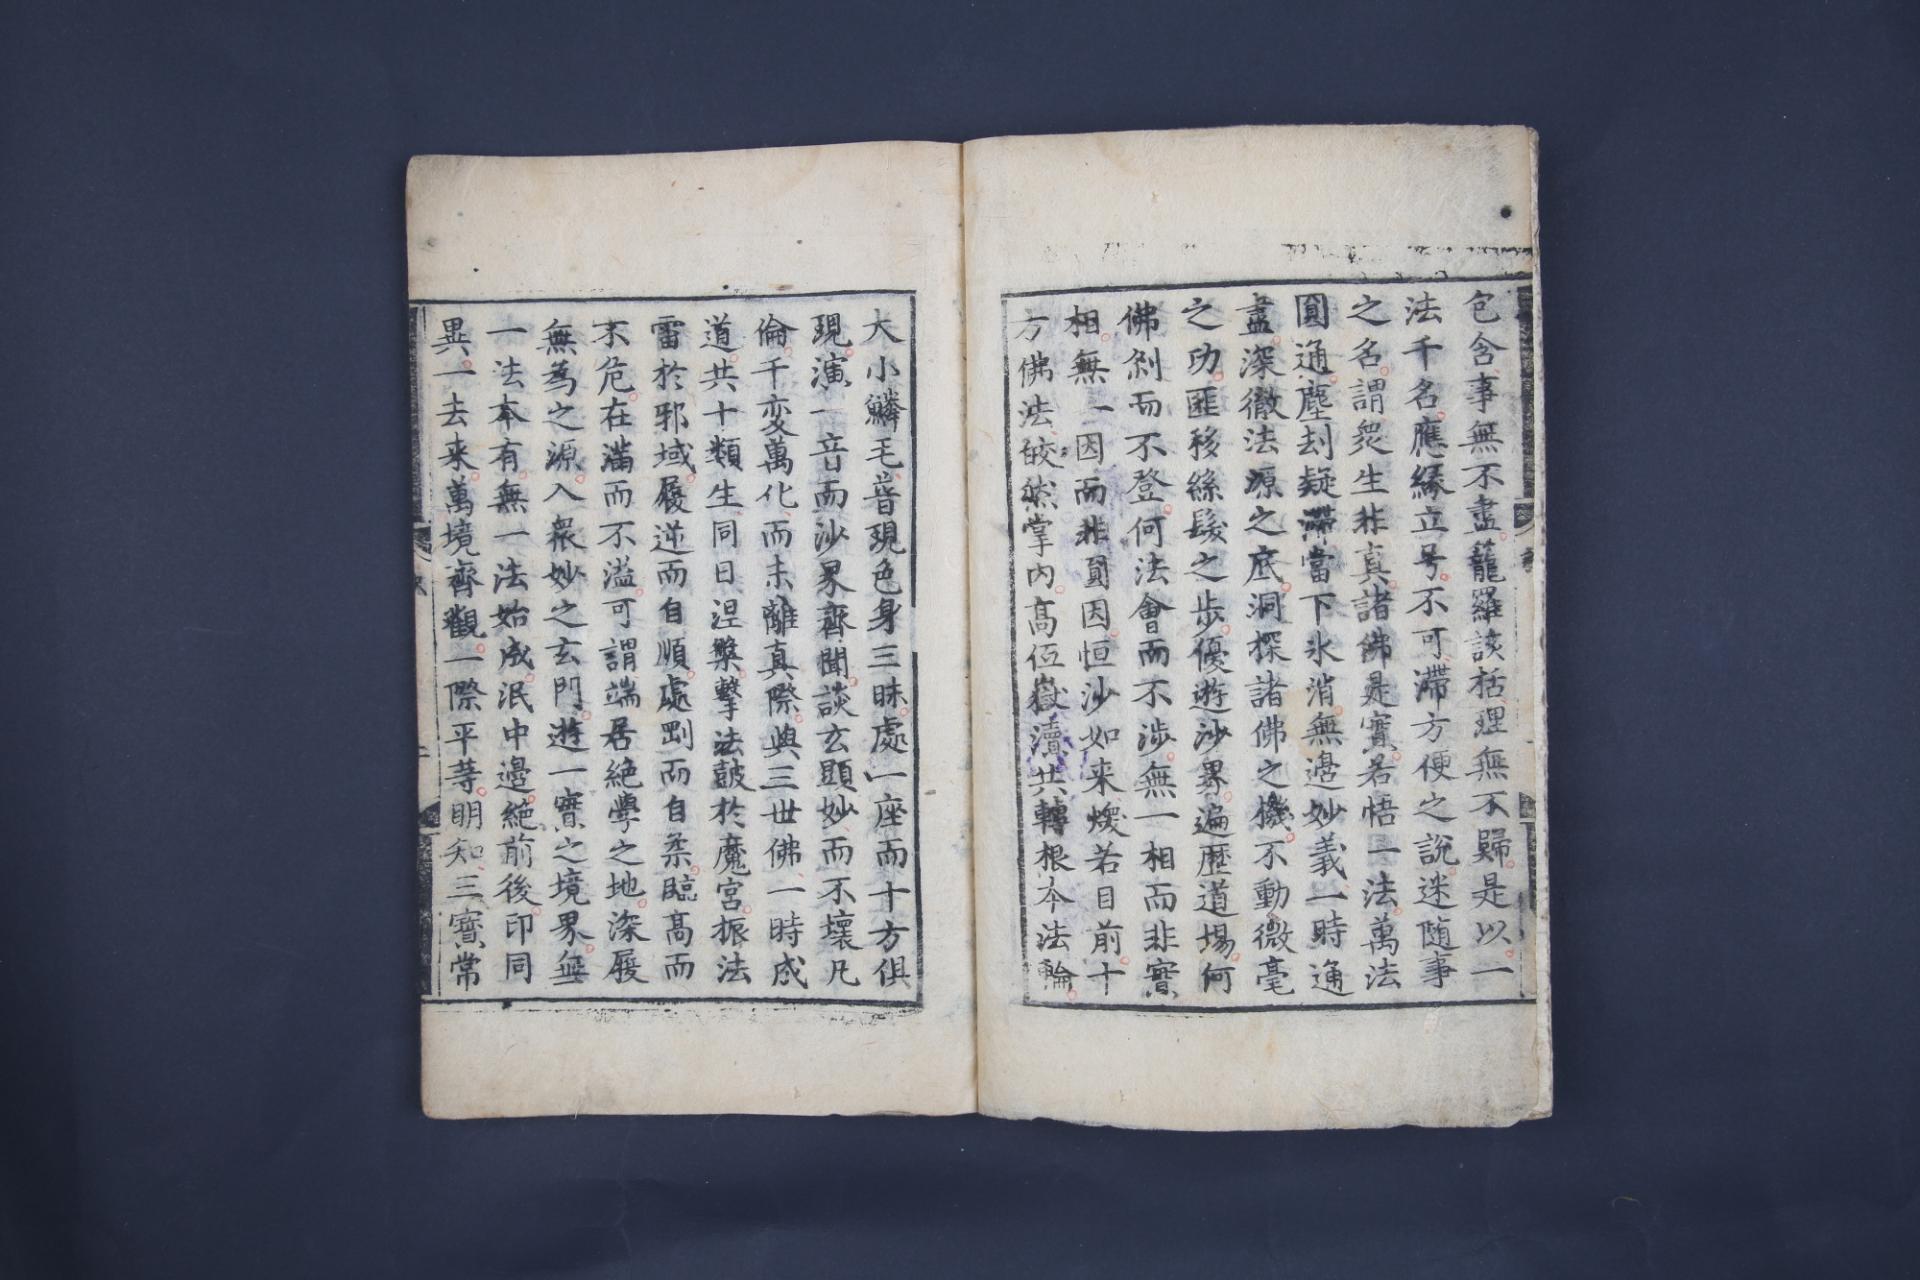 包含事無不盡籠羅該括理無不歸是以一
法千名應緣立号不可滯方便之說迷随事
之名謂衆生非真諸佛是實若悟一法萬法
圓通塵刼疑滯當下氷消無邊妙義一時通
盡深徹法源之底洞探諸佛之機不動微毫
之功匪移絲髮之步優遊沙界遍歷道場何
佛刹而不登何法會而不涉無一相而非實
相無一因而非圓因恒沙如来煥若目前十
方佛法皎然掌內高低嶽瀆共轉根本法輪
大小鱗毛普現色身三昧處一座而十方俱
現演一音而沙界齊聞談玄顯妙而不壞凡
倫千変萬化而未離真際與三世佛一時成
道共十類生同日涅槃擊法皷於魔宮振法
雷於邪域履逆而自順處剛而自柔臨高而
不危在滿而不溢可謂端居絶學之地深履
無為之源入衆妙之玄門遊一實之境界無
一法本有無一法始成泯中邊絶前後印同
異一去来萬境齊觀一際平等明知三寶常